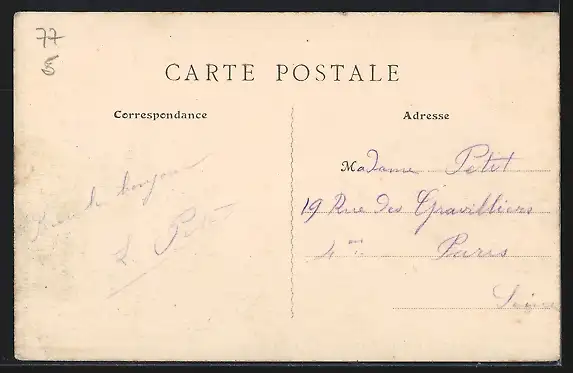 77
CARTE POSTALE
Correspondance
Adresse
Madame Petit
19 Rue des Gravilliers
4me Paris
Seine
bonjour
L. Petit